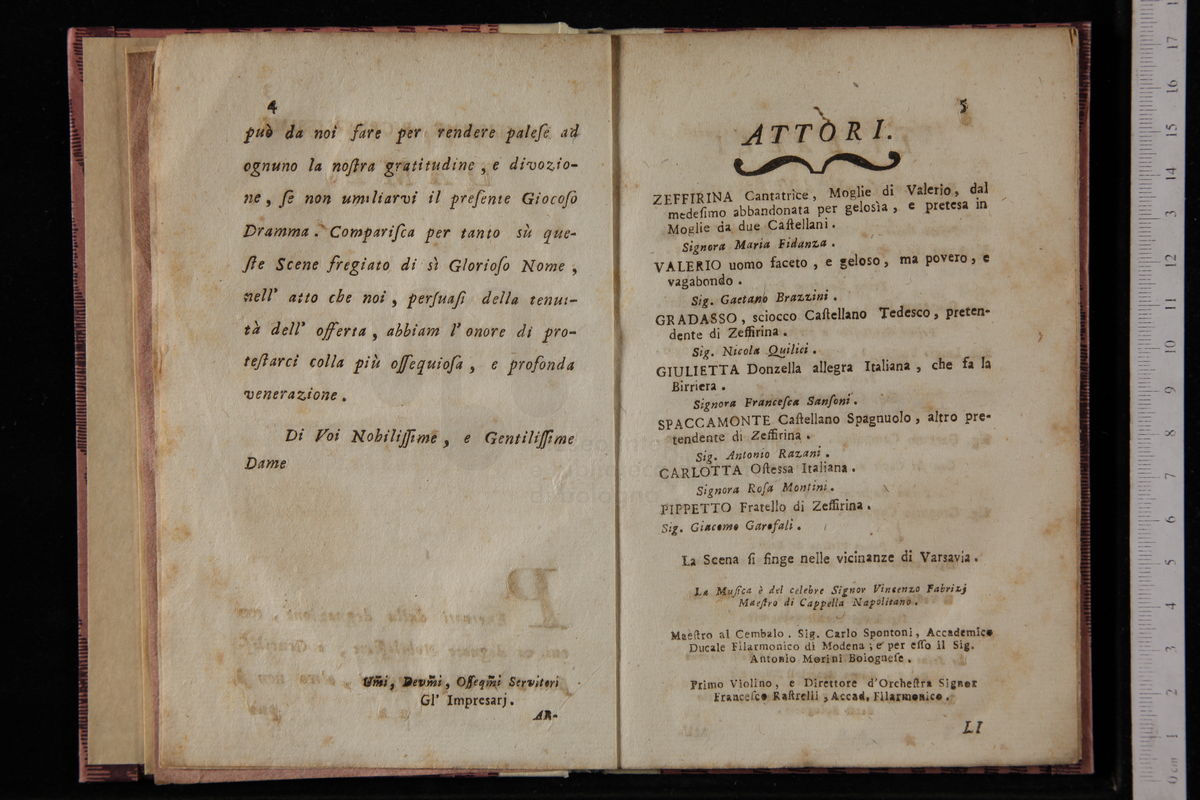 4
può da noi fare per rendere paleſe ad
ognuno la noſtra gratitudine, e divozio-
ne, ſe non umiliarvi il preſente Giocoſo
Dramma. Compariſca per tanto sù que-
ſte Scene fregiato di sì Glorioſo Nome,
nell' atto che noi, perſuaſi della tenui-
tà dell' offerta, abbiam l' onore di pro-
teſtarci colla più oſſequioſa, e profonda
venerazione.
Di Voi Nobiliſſime, e Gentiliſſime
Dame
Um̃i, Devm̃i, Oſſeqm̃i Servitori
Gl' Impresarj.
AR-
5
ATTORI.
ZEFFIRINA Cantatrice, Moglie di Valerio, dal
medeſimo abbandonata per geloſìa, e pretesa in
Moglie da due Caſtellani.
Signora Maria Fidanza.
VALERIO uomo faceto, e geloso, ma povero, e
vagabondo.
Sig. Gaetano Brazzini.
GRADASSO, sciocco Caſtellano Tedesco, preten-
dente di Zeffirina.
Sig. Nicola Quilici.
GIULIETTA Donzella allegra Italiana, che fa la
Birriera.
Signora Franceſca Sanſoni.
SPACCAMONTE Caſtellano Spagnuolo, altro pre-
tendente di Zeffirina.
Sig. Antonio Razani.
CARLOTTA Oſtessa Italiana.
Signora Roſa Montini.
PIPPETTO Fratello di Zeffirina.
Sig. Giacomo Garofali.
La Scena ſi finge nelle vicinanze di Varsavia.
La Muſica è del celebre Signor Vincenzo Fabrizj
Maeſtro di Cappella Napolitano.
Maeſtro al Cembalo. Sig. Carlo Spontoni, Accademico
Ducale Filarmonico di Modena; e per eſſo il Sig.
Antonio Morini Bologneſe.
Primo Violino, e Direttore d'Orcheſtra Signor
Franceſco Raſtrelli, Accad. Filarmonico.
LI